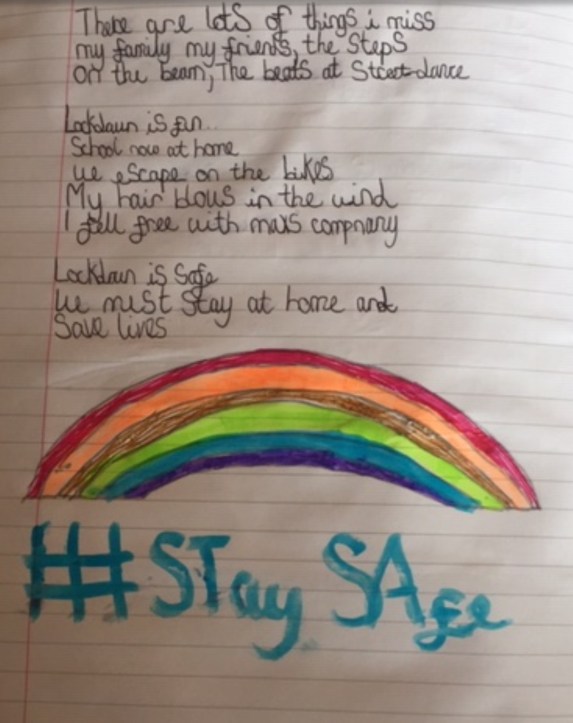 There are lots of things i miss
my family my friends, the steps
on the beam, The beats at Street dance
Lockdawn is fun..
School now at home
we escape on the bikes
My hair blows in the wind
I fell free with mars compnany
Lockdawn is Safe
We must stay at home and
Save lives
#Stay SAfe